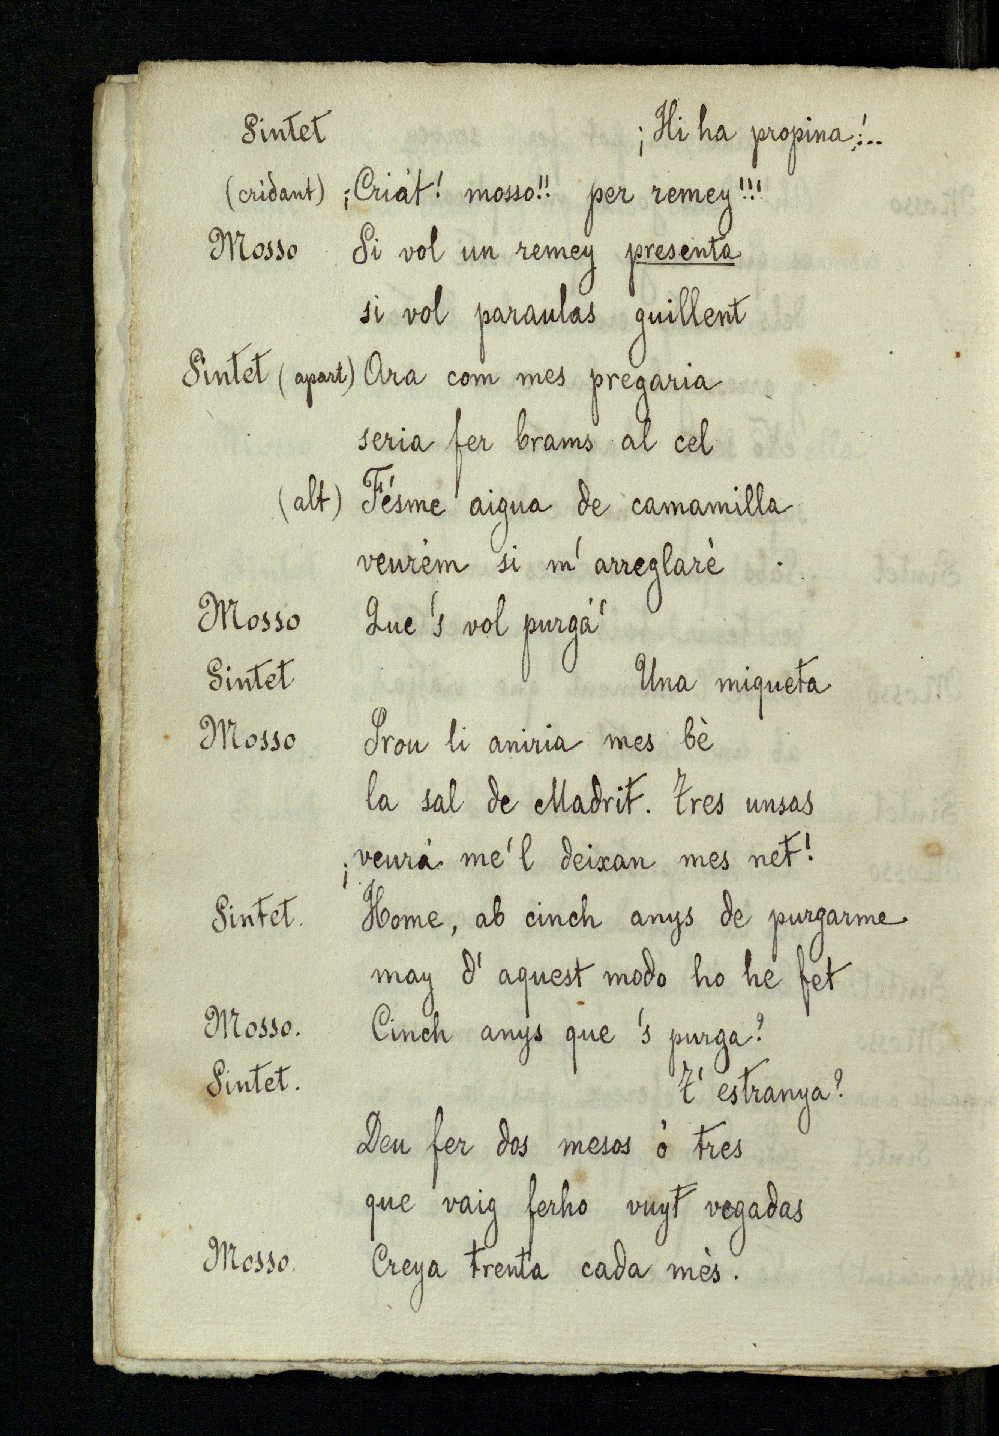 Sintet ¡Hi ha propina!..
(cridant) ¡Criát! mosso!! per remey!!!
Mosso Si vol un remey presenta
si vol paraulas guillent
Sintet (apart) Ara com mes pregaria
seria fer brams al cel
(alt) Fésme aigua de camamilla
veurém si m' arreglaré
Mosso Que 's vol purgá'
Sintet Una miqueta
Mosso Prou li aniria mes bè
la sal de Madrit. Tres unsas
¡veurá me'l deixan mes net!
Sintet. Home, ab cinch anys de purgarme
may d' aquest modo ho he fet
Mosso. Cinch anys que 's purga?
Sintet. T' estranya?
Deu fer dos mesos ó tres
que vaig ferho vuyt vegadas
Mosso. Creya trenta cada mès.